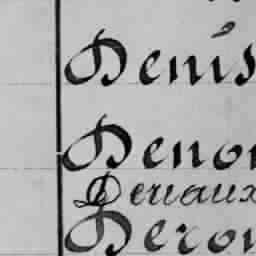 Denis
Denon
Deriaux
Deron